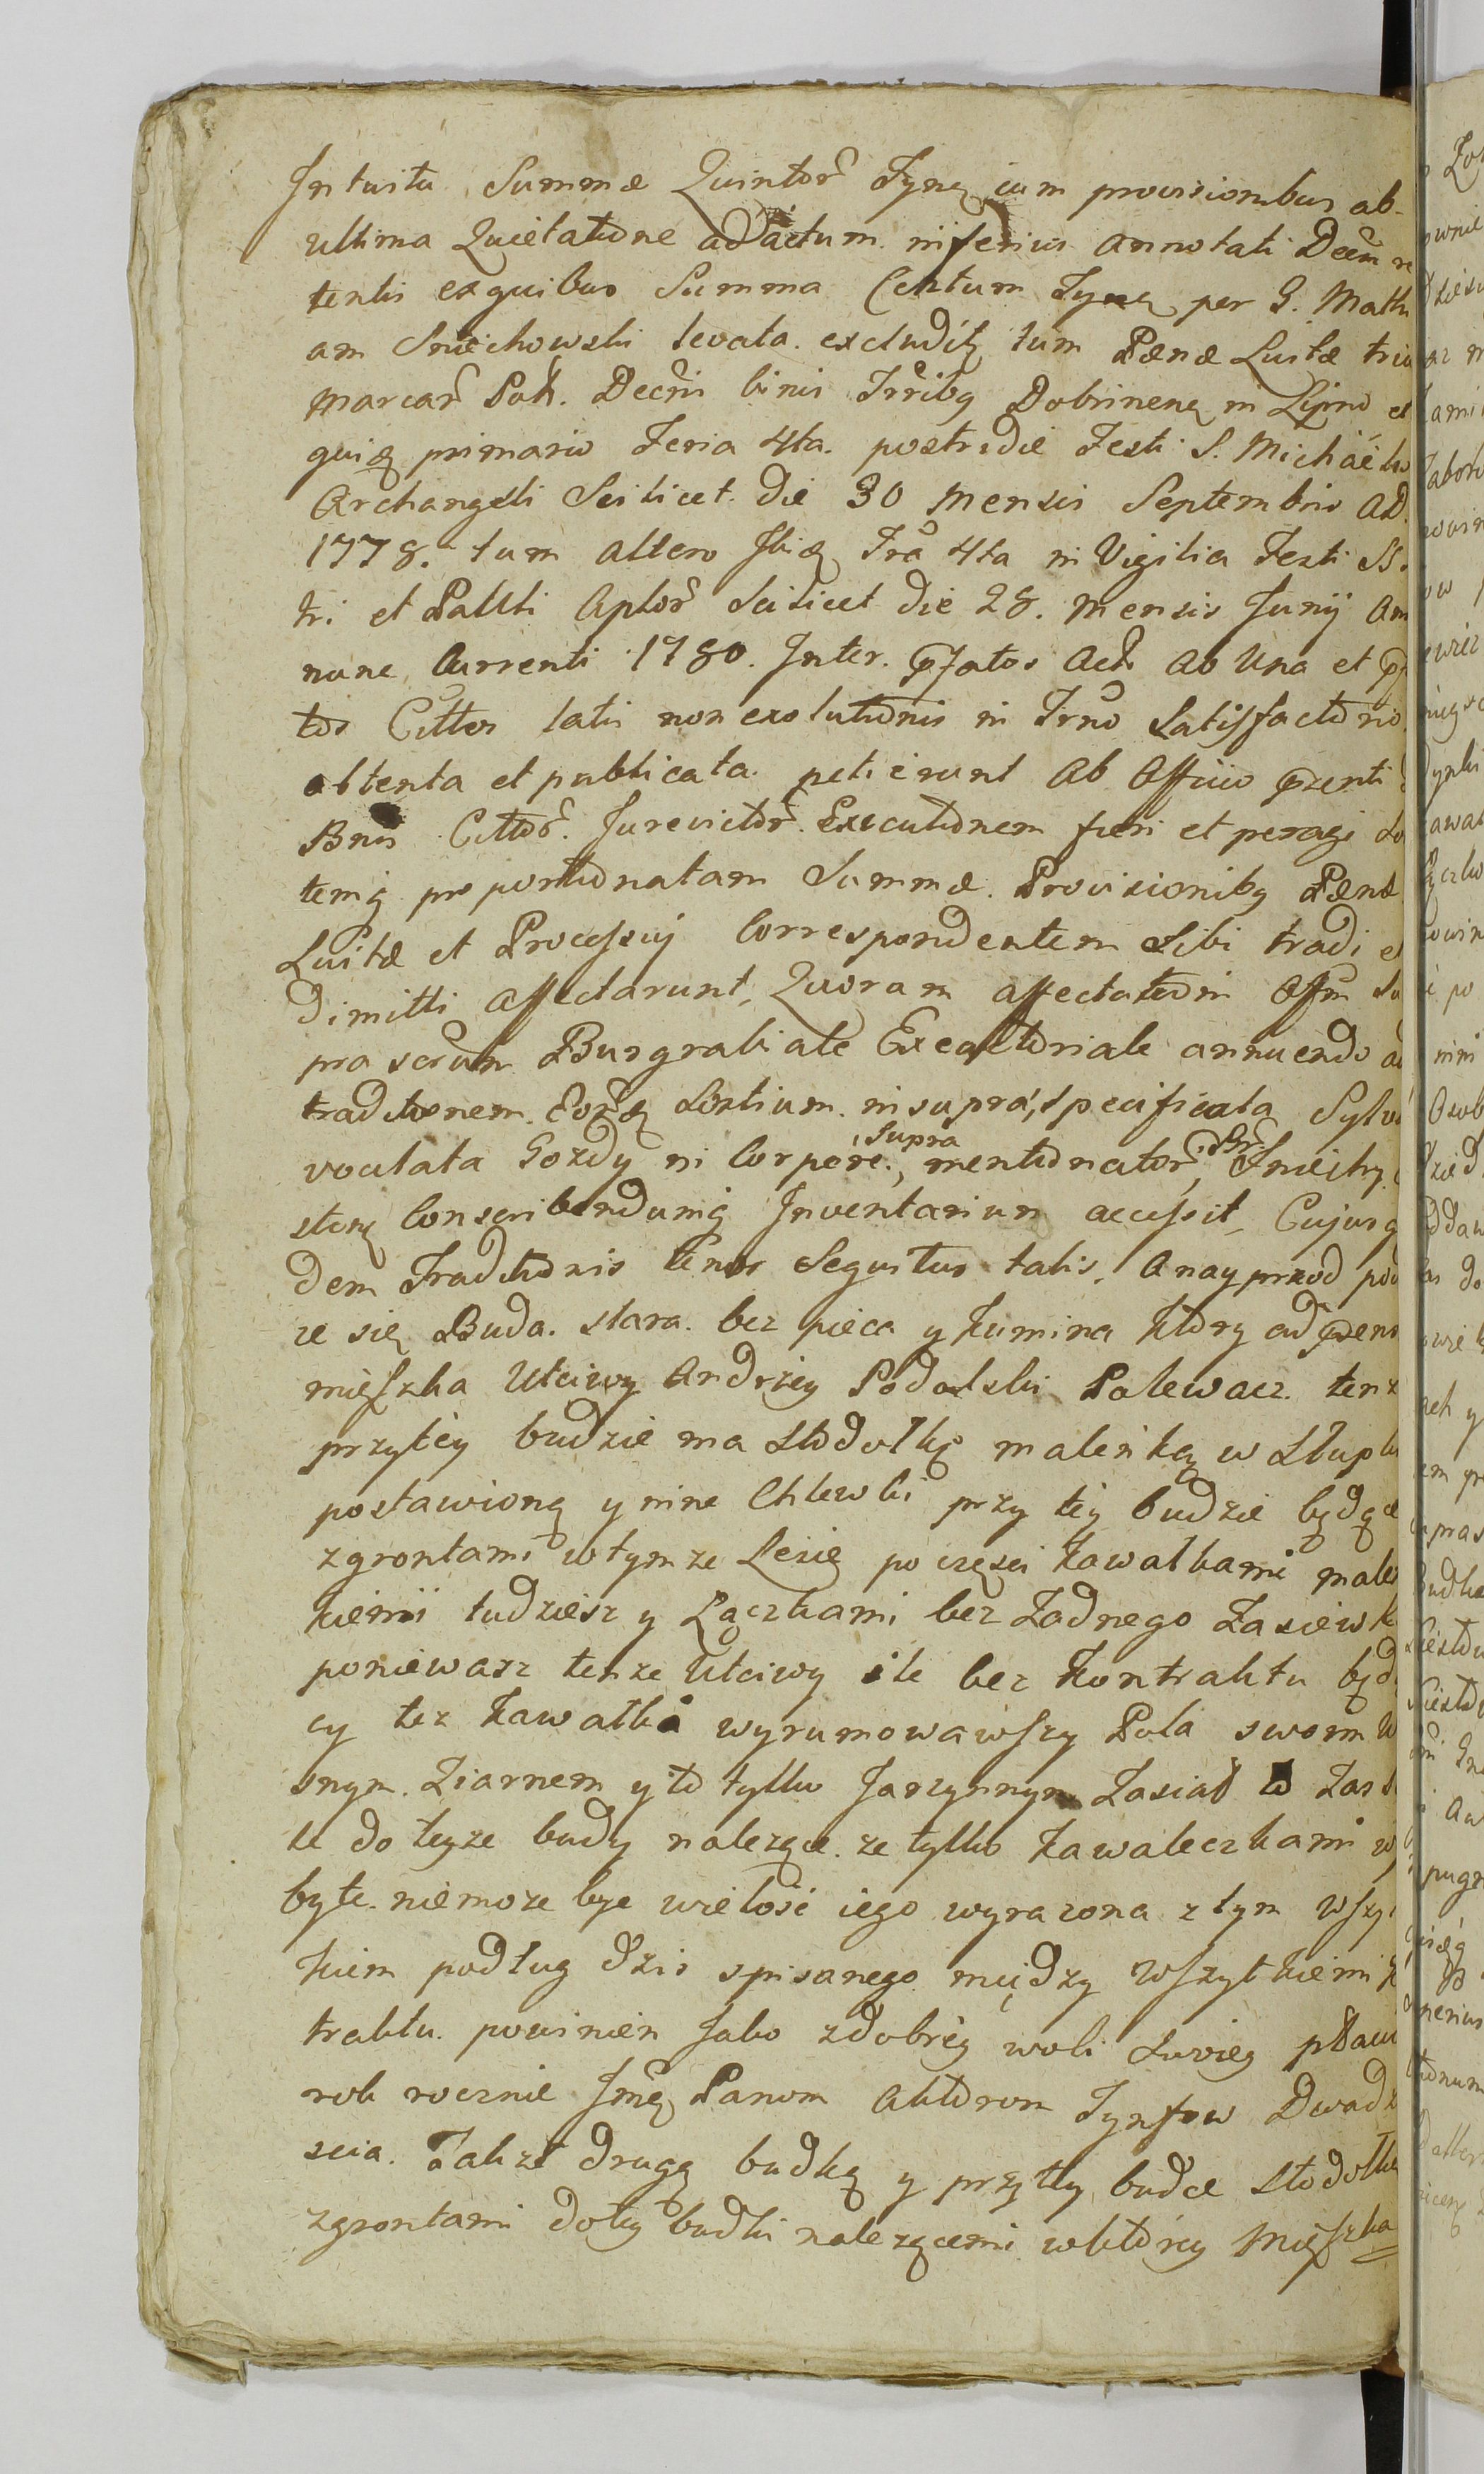 Intuitu Summæ Quintor Tynę cum provisionibus ab-
ultima Quietatione ad actum inferius annotati Decm re
tentis exquibus Summa Centum Tynę per G. Math
am Sniechowski levata. excluditę tum Pænæ Luitæ triu
marcar Poł. Decris binis Trribg Dobrinenę in Lipno et
quię primario Feria 4ta. postridie Festi S. Michaelis
Archangeli Scilicet die 30 Mensis Septembris AD.
1778. tum altero Ibię Fra 4ta in Vigilia Festi SS.
tri et Pauli Aplor Scilicet die 28. Mensis Junij An
nunc Currenti 1780. Inter. pfatos Act. ab Una et p
tos Cittos latis non exolutionis in Trno Satisfactorio
obtenta et publicata. petierunt ab Officio pzenti
Bnis Cittor. Jurevictor. Executionem fieri et peragi So
temq proportionatam Summæ. Provisionibg Pænæ
Luitæ et Processuj Correspondentem Sibi tradi et
dimitti affectarunt, Quoram affectationi Offm Su
prascrum Burgrabiale Exeactoriale annuendo ad
traditionem Eorę Sortium. in supra, specificata Sylva
vocitata Gozdy in Corpore. Supra mentionator, Gr Sniechy
storę Conscribendumq Inventarium accessit, Cujusq
dem Traditionis tenor Sequitur talis. A nayprzod pod
ze się Buda. stara. bez pieca y Kumina Ktory ad pzens
mięszka Utciwy Andrzey Podolski Polewacz. tenz
przytéy budzie ma Stodołkę maleńką w Słupki
postawioną y inne Chlewki przy téy budzie będące
zgrontami wtymze Lesie po częsci Kawałkami malen
kiemi tudziesz y Łączkami bez Zadnego Zasiewk
poniewasz tenze Utciwy ile bez Kontraktu będ
cy tez Kawałki wyrumowawszy Pola swoim W
snym Ziarnem y to tylko Jarzynnym Zasiał to Zas
le do teyze budy nalezące. ze tylko Kawaleczkami w
byte. niemoze byc wielosc iego wyrazona z tym wszy
kiem podług dzis spisanego między Wszytkiemi K
traktu. powinien Jako zdobréy woli Swoiey płaci
rok rocznie Jmę Panom Aktorom Tynfow Dwadz
scia. Takze drugą budkę y przytly budce Stodolkę
zgrontami dotey budki nalezącemi wktórey Mięszka